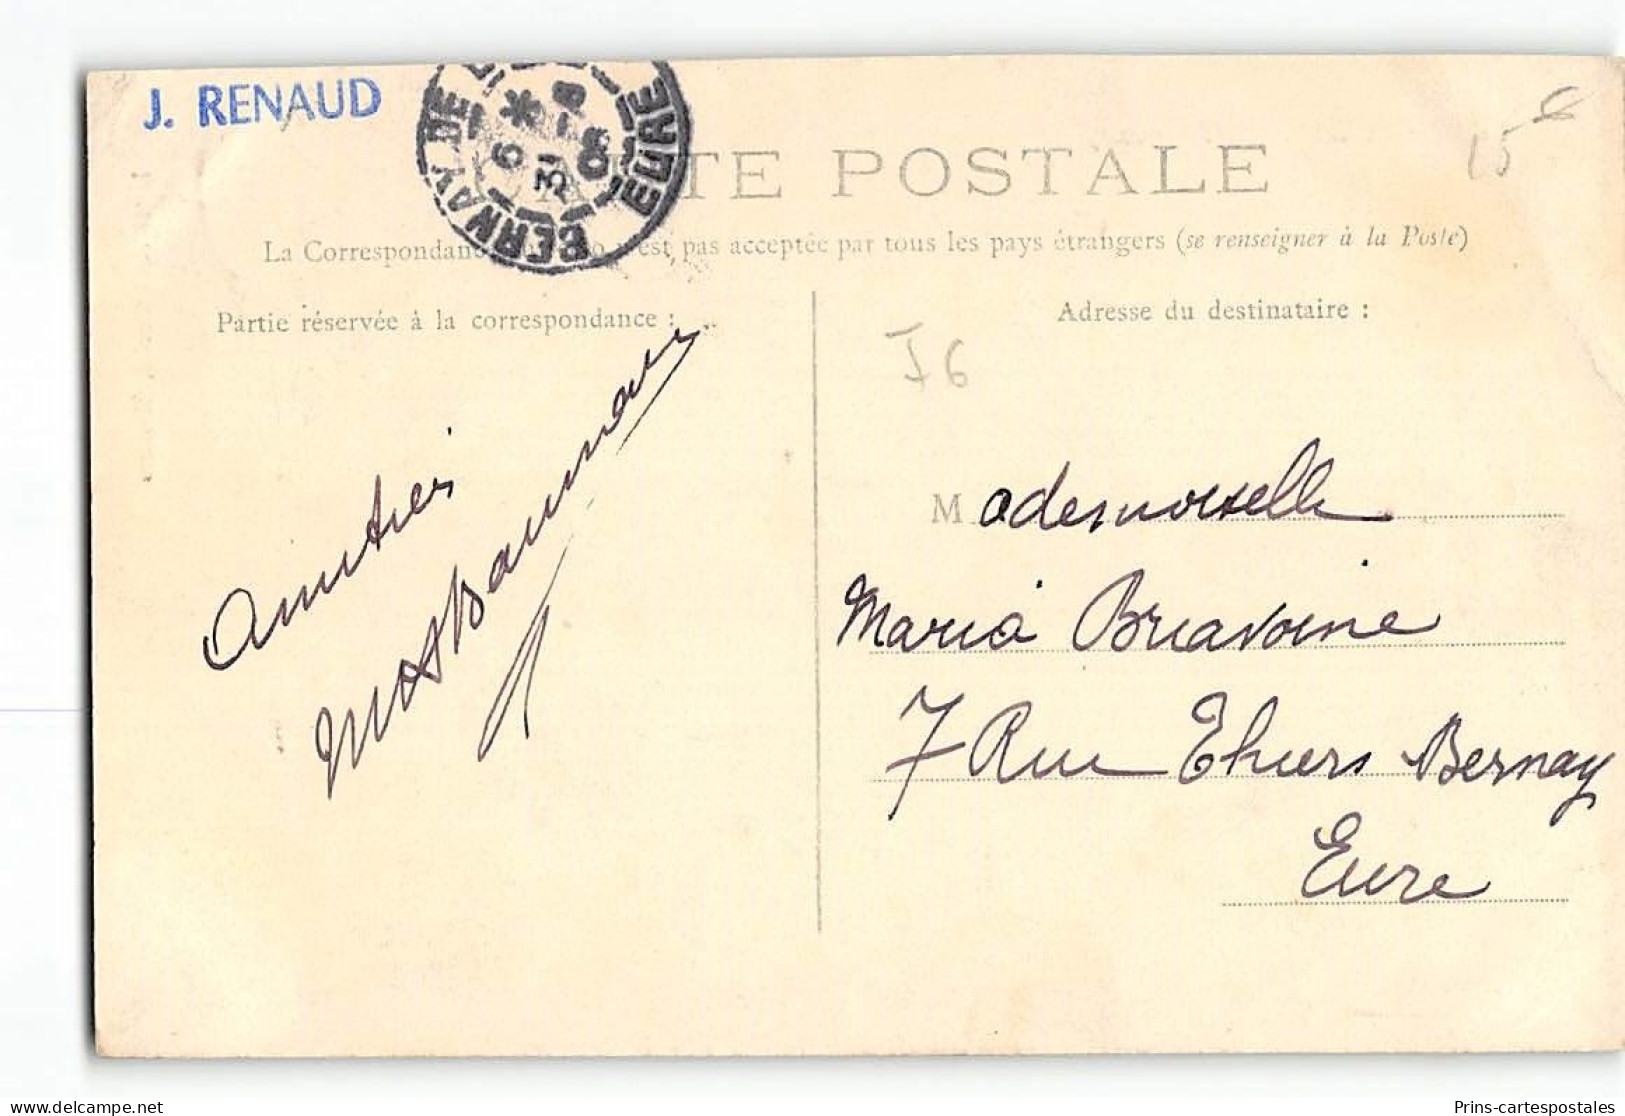 J. RENAUD
BERNAY DE L'EURE EURE
6 * 31 -8 05
CARTE POSTALE
15 €
La Correspondance au recto n'est pas acceptée par tous les pays étrangers (se renseigner à la Poste)
Partie réservée à la correspondance :
Adresse du destinataire :
J6
Amitiés
Mademoiselle
Maria Briavoine
7 Rue Thiers Bernay
Eure
Prins-cartespostales